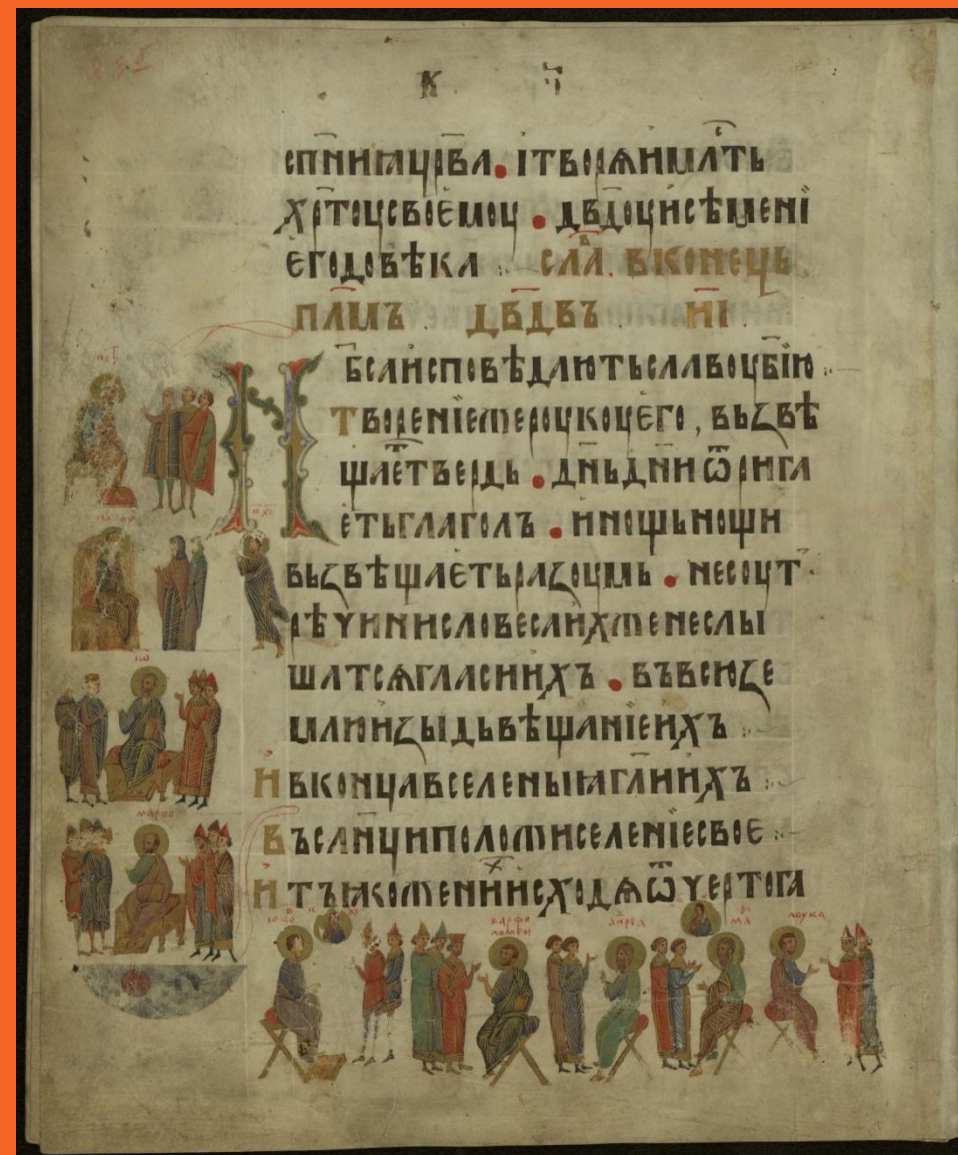 сп҃ниꙗцр҃ва. ітворѧимл҃ть
хр҃тоусвоемоу . дв҃доуисѣмені
егодовѣка сла҃в. вконець
пл҃мъ . дв҃двъ . н҃і .
Нб҃саисповѣдаютьславоуб҃ію
твореніежероукоуего, възвѣ
щаеттвердь . дн҃ьдн҃иѿрига
етьглаголъ . инощьнощи
възвѣщаетьразоумь . несоут
рѣчининсловесаихженеслы
шатсѧгласиихъ . въвсюзе
млюизыдьвѣщаніеихъ
ивконцавселеныꙗгл҃иихъ
въслн҃циположиселеніесвое
итъꙗкожених҃исходѧѿчертога
їѡ
марко
варфо
ломѣи
андрѣа
лоука